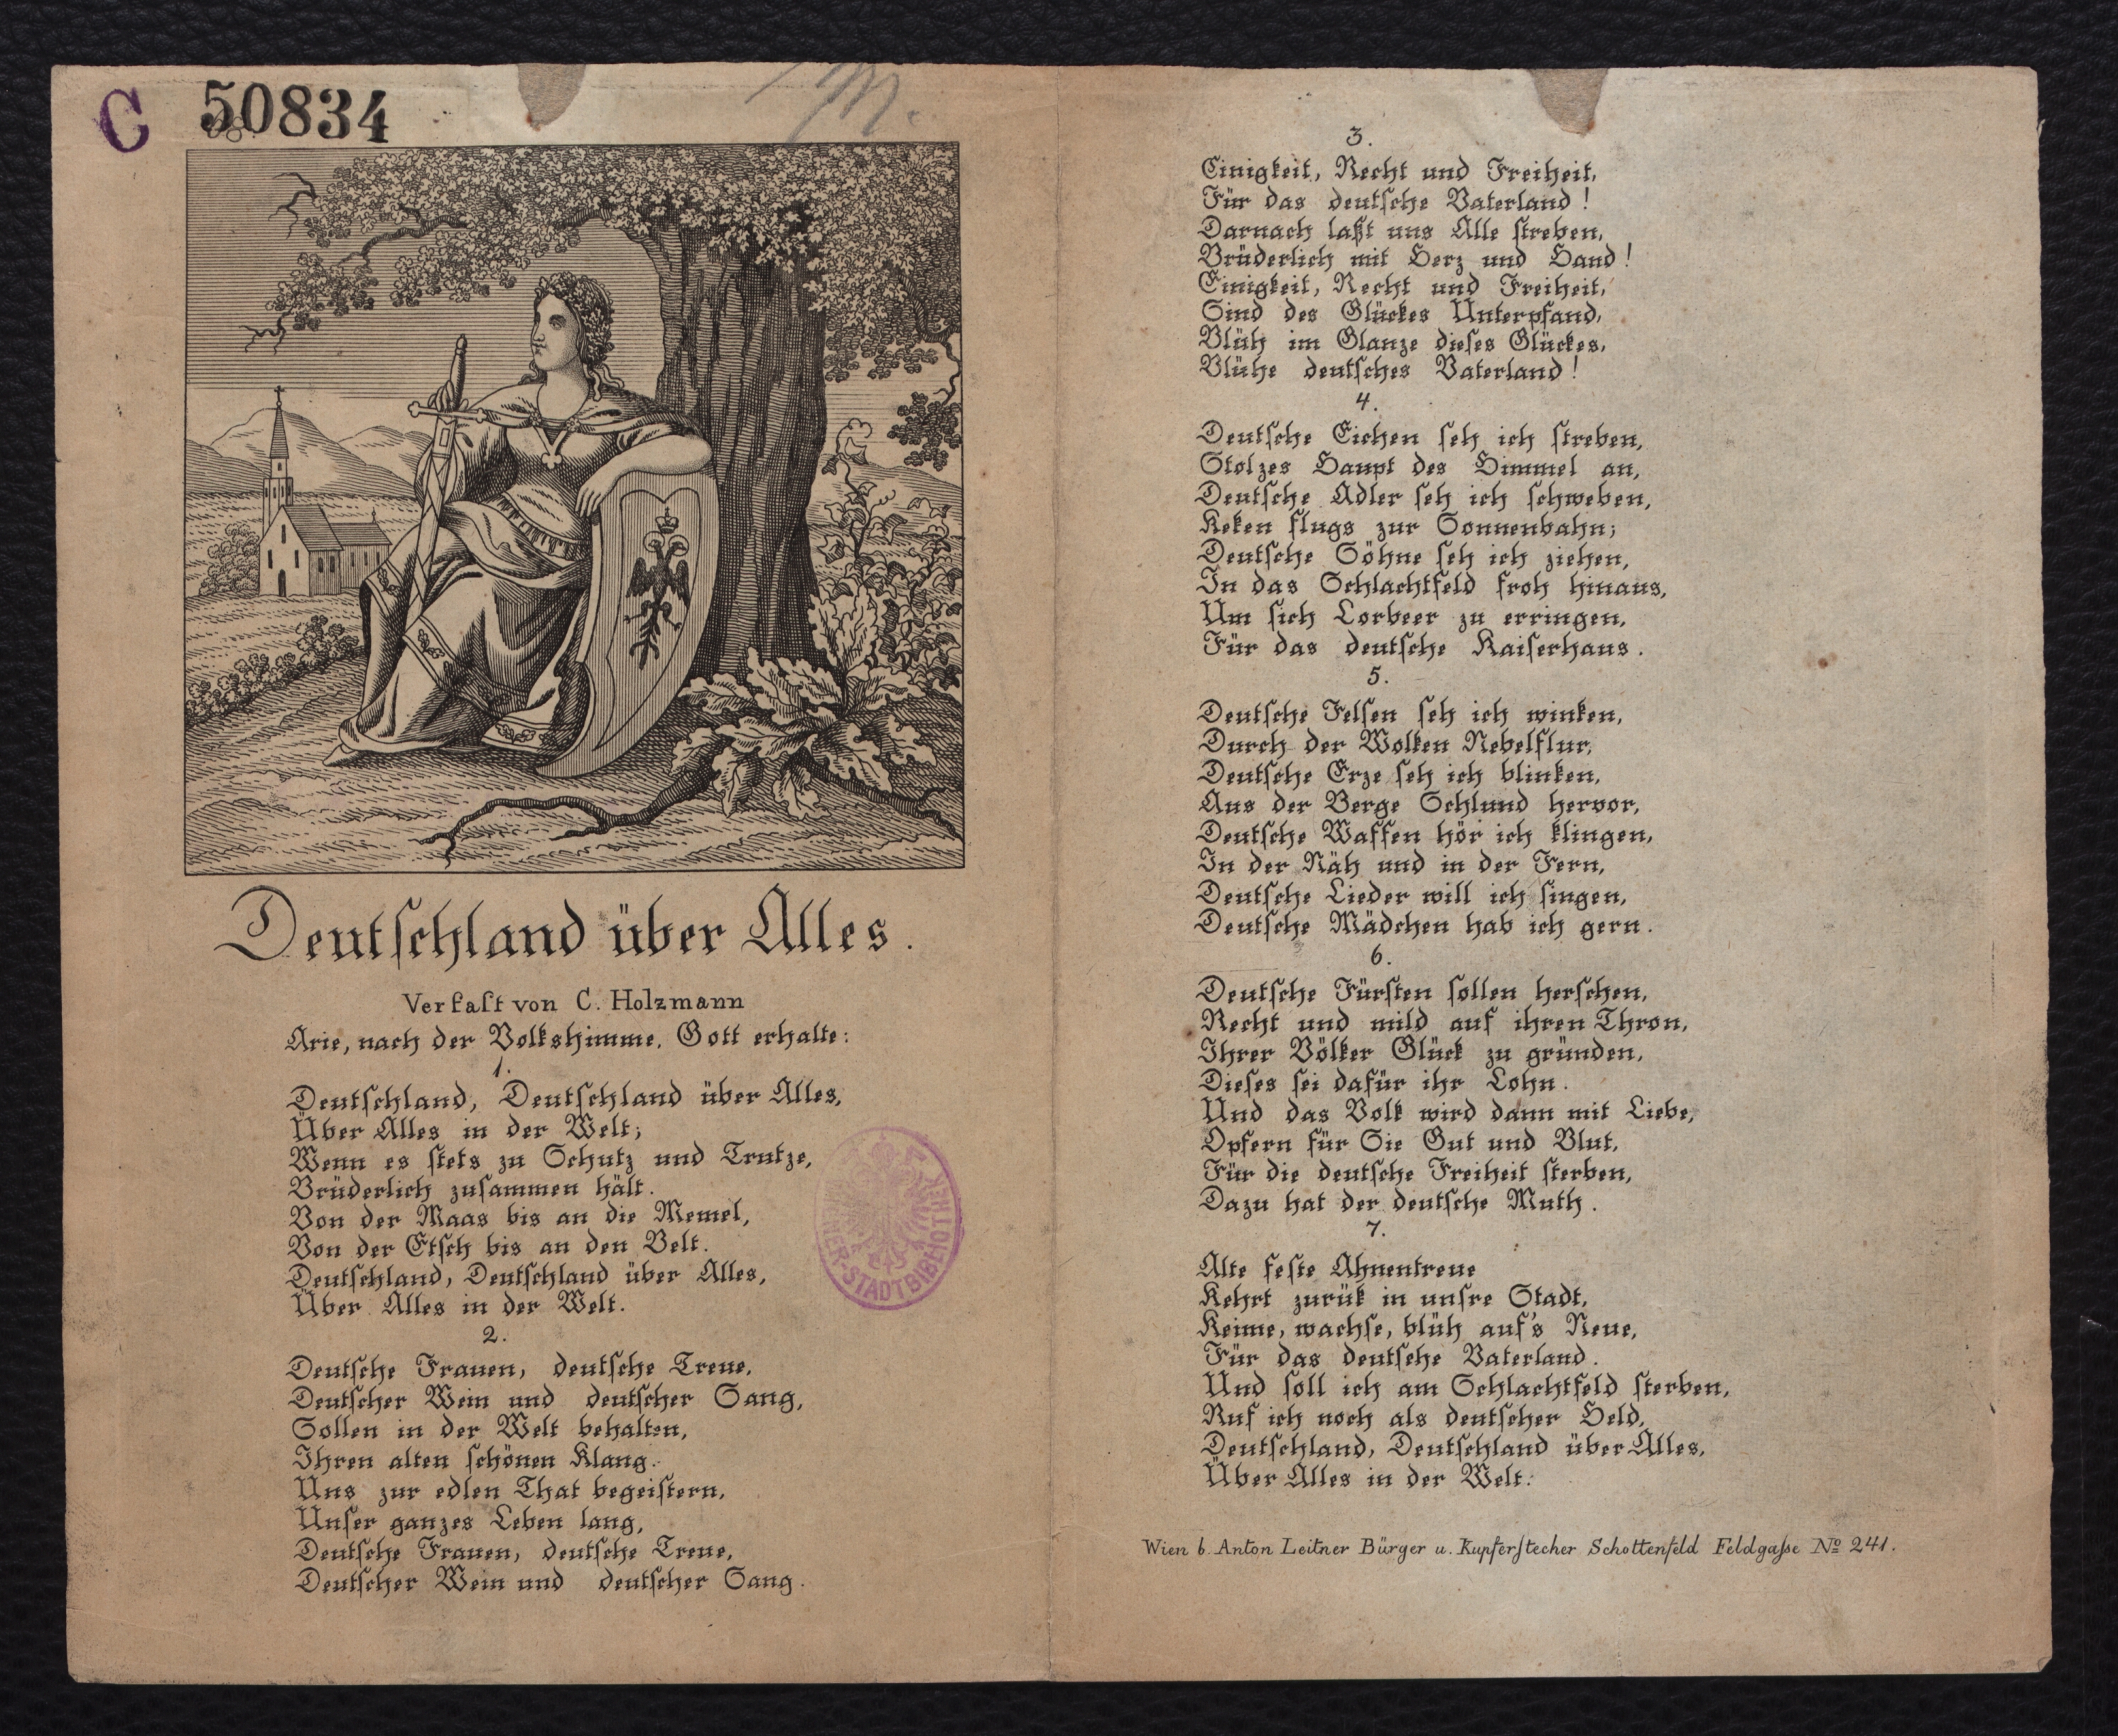 C 50834
M.
Deutſchland über Alles.
Verfaſt von C. Holzmann
Arie, nach der Volkshimme. Gott erhalte:
1.
Deutſchland, Deutſchland über Alles,
Über Alles in der Welt;
Wenn es ſtets zu Schutz und Trutze,
Brüderlich zuſammen hält.
Von der Maas bis an die Memel,
Von der Etſch bis an den Belt.
Deutſchland, Deutſchland über Alles,
Über Alles in der Welt.
2.
Deutſche Frauen, deutſche Treue,
Deutſcher Wein und deutſcher Sang,
Sollen in der Welt behalten,
Ihren alten ſchönen Klang.
Uns zur edlen That begeiſtern,
Unſer ganzes Leben lang,
Deutſche Frauen, deutſche Treue,
Deutſcher Wein und deutſcher Sang.
STADTBIBLIOTHEK
3.
Einigkeit, Recht und Freiheit,
Für das deutſche Vaterland!
Darnach laßt uns Alle ſtreben,
Brüderlich mit Herz und Hand!
Einigkeit, Recht und Freiheit,
Sind des Glückes Unterpfand,
Blüh im Glanze dieſes Glückes,
Blühe deutſches Vaterland!
4.
Deutſche Eichen ſeh ich ſtreben,
Stolzes Haupt des Himmel an,
Deutſche Adler ſeh ich ſchweben,
Keken flugs zur Sonnenbahn;
Deutſche Söhne ſeh ich ziehen,
In das Schlachtfeld froh hinaus,
Um ſich Lorbeer zu erringen,
Für das deutſche Kaiſerhaus.
5.
Deutſche Felſen ſeh ich winken,
Durch der Wolken Nebelflur,
Deutſche Erze ſeh ich blinken,
Aus der Berge Schlund hervor,
Deutſche Waffen hör ich klingen,
In der Näh und in der Fern,
Deutſche Lieder will ich ſingen,
Deutſche Mädchen hab ich gern.
6.
Deutſche Fürſten ſollen herſchen,
Recht und mild auf ihren Thron,
Ihrer Völker Glück zu gründen,
Dieſes ſei dafür ihr Lohn.
Und das Volk wird dann mit Liebe,
Opfern für Sie Gut und Blut,
Für die deutſche Freiheit ſterben,
Dazu hat der deutſche Muth.
7.
Alte feſte Ahnentreue
Kehrt zurük in unſre Stadt,
Keime, wachſe, blüh auf's Neue,
Für das deutſche Vaterland.
Und ſoll ich am Schlachtfeld ſterben,
Ruf ich noch als deutſcher Held,
Deutſchland, Deutſchland über Alles,
Über Alles in der Welt.
Wien b. Anton Leitner Bürger u. Kupferſtecher Schottenfeld Feldgaſse No 241.